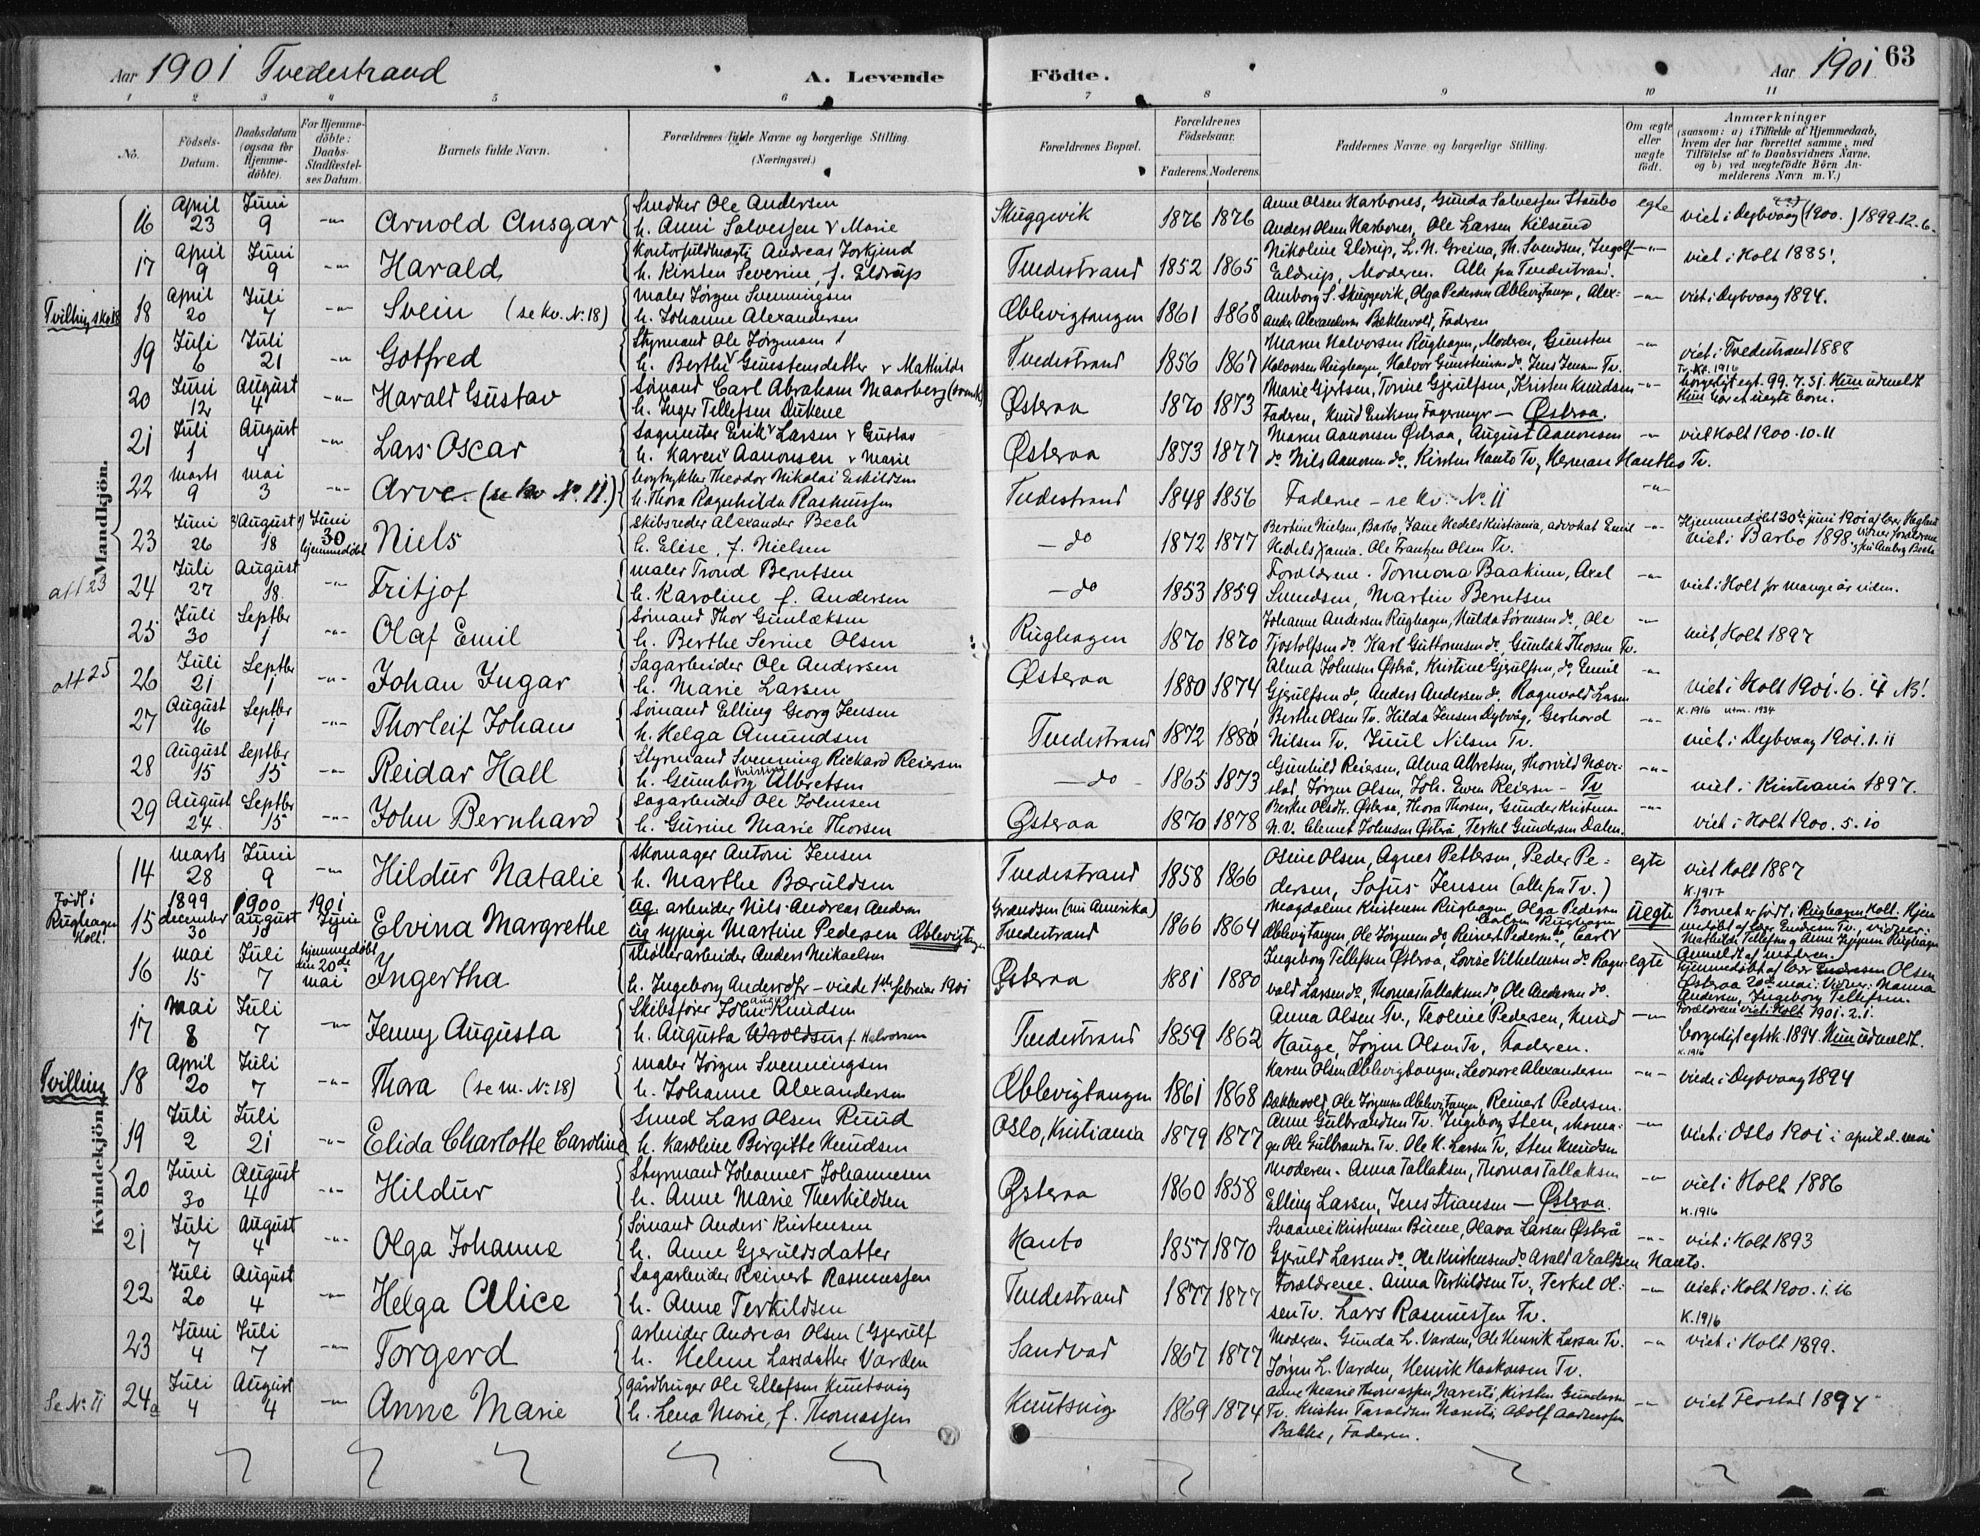 Aar 1901 Tvedestrand A. Levende Födte. Aar 1901 63
1 2 3 4 5 6 7 8 9 10 11
No. Födsels-Datum. Daabsdatum (ogsaa for Hjemme-döbte). For Hjemme-döbte: Daabs-Stadfæstel-ses Datum. Barnets fulde Navn. Forældrenes fulde Navne og borgerlige Stilling. (Næringsvei.) Forældrenes Bopæl. Forældrenes Födselsaar. Faderens. Moderens. Faddernes Navne og borgerlige Stilling. Om ægte eller uægte födt. Anmærkninger (saasom: a) i Tilfælde af Hjemmedaab, hvem der har forrettet samme, med Tilföielse af to Daabsvidners Navne, og b) ved uægtefödte Börn Anmelderens Navn m. V.)
Mandkjön.
16 April 23 Juni 9 -"- Arnold Ansgar Snedker Ole Andersen h. Anni Salvessen v Marie Skuggevik 1876 1876 Anne Olsen Harbones, Gunda Salvessen Staubo Anders Olsen Harbones, Ole Larsen Kilsund egte viet i Dybvaag (1900.) 1899.12.6.
17 April 9 Juni 9 -"- Harald Andreas h. Kirsten Severine, f. Eldrup Tvedestrand 1852 1865 Nikoline Eldrup, L. N. Greina, Th. Svendsen, Ingolf Eldrup, Moderen. Alle fra Tvedestrand. -"- viet i Holt 1885!
Tvilling sko 18 18 April 20 Juli 7 -"- Svein (se kv. No 18) Maler Jørgen Svenningsen h. Johanne Alexandersen Æblevigtangen 1861 1868 Amborg S. Skuggevik, Olga Pedersen Æblevigtangen, Alexander Alexandersen Bakkevold, Faderen -"- viet i Dybvaag 1894.
19 Juli 6 Juli 21 -"- Gotfred Styrmand Ole Jørgensen h. Berthe Gunstensdatter v Mathilde Tvedestrand 1856 1867 Maren Halvorsen Rughagen, Moderen, Gunsten Halvorsen Rughagen, Halvor do. Jens Jensen Tv. -"- viet i Tvedestrand 1888
20 Juni 12 August 4 -"- Harald Gustav Sømand Carl Abraham Maarberg (svensk) h. Inger Tellefsen Dukene Østeraa 1870 1873 Marie Gjertsen, Torine Gjerulfsen, Kristen Knudsen Faderen, Knud Eriksen Fagermyr - Østeraa. -"- K. 1916 borgerligt egt. 99.7.31. Hun udmeldt
21 Juli 1 August 4 -"- Lars Oscar Sagmester Erik v Larsen v Gustav h. Karen v Aanonsen v Marie Østeraa 1873 1877 Maren Aanonsen Østeraa, August Aanonsen do. Nils Aanonsen do. Kirsten Hanto Tv, Herman Hantho Tv. -"- viet Holt 1900.10.11
22 Marts 9 Mai 3 -"- Arve (se kv No. 11) bogtrykker Theodor Nikolai Eskildsen h. Thora Ragnhilda Rasmussen Tvedestrand 1848 1856 Fadderne - se kv. No 11 -"-
23 Juni 26 August 18 Juni 30 hjemmedøbt Niels Skibsreder Alexander Bech h. Elise, f. Nielsen - do 1872 1877 Bertine Nielsen, Barbo, Jane Hedels Kristiania, advokat Emil Hedels Xania. Ole Frantzen Olsen Tv. -"- Hjemmedøbt 30te juni 1901 af viet i Barbo 1898.
att 23 24 Juli 27 August 18. -"- Fritjof Maler Trond Berntsen h. Karoline f. Andersen - do 1853 1859 Forældrene. Baakinn, Axel Smundsen, Martin Berntsen -"- viet i Holt for mange år siden.
25 Juli 30 Septbr 1 -"- Olaf Emil Sømand Thor Gunlæksen h. Berthe Serine Olsen Rughagen 1870 1870 Johanne Andersen Rughagen, Hulda Sørensen do, Ole Tjostolfsen do, Karl Guttormsen do, Gunlak Thorsen Tv. -"- viet, Holt 1897
att 25 26 Juli 21 Septbr 1 -"- Johan Ingar Sagarbeider Ole Andersen h. Marie Larsen Østeraa 1880 1874 Alma Johnsen Østrå, Kristine Gjerulfsen, do, Emil Gjerulfsen do, Anders Andersen do Ragnvold Larsen -"- viet i Holt 1901.6.4 NB!
27 August 16 Septbr 1 -"- Thorleif Johans Sømand Elling Georg Jensen h. Helga Amundsen Tvedestrand 1872 1880 Berthe Olsen Tv. Hilda Jensen Dybvåg, Gerhard Nilsen Tv. Juul Nilsen Tv. -"- K. 1916 utm. 1934 viet i Dybvaag 1901.1.11
28 August 15 Septbr 15 -"- Reidar Hall Styrmand Svenning Rickard Reiersen h. Gunborg Kristine Albretsen - do - 1865 1873 Gunhild Reiersen, Alma Albretsen, Thorvild Næve- stad, Jørgen Olsen, Joh. Even Reiersen - Tv -"- viet i Kristiania 1897.
29 August 24 Septbr 15 -"- John Bernhard Sagarbeider Ole Johnsen h. Gurine Marie Thorsen Østeraa 1870 1878 Berthe Olsdtr. Østeraa, Thora Thorsen, Gunder Kristensen N.V. Clemet Johnsen Østrå, Terkel Gundersen Dalen. -"- viet i Holt 1900.5.10
Kvindekjön.
14 Marts 28 Juni 9 -"- Hildur Natalie Skomager Antoni Jensen h. Marthe Bæruldsen Tvedestrand 1858 1866 Osine Olsen, Agnes Pettersen, Peder Pe- dersen, Sofus Jensen (alle fra Tv.) egte viet Holt 1887
Født i Rughagen Holt! 15 1899 december 30 1900 August 1901 Juni 9 Elvina Margrethe ug. arbeider Nils Andreas Andersen ug sypige Martine Pedersen Æblevigtangen Grændsen (nu Amerika) Tvedestrand 1866 1864 Magdalene Kristensen Rughagen, Olga Pedersen Æblevigtangen, Ole Jørgensen do Reinert Pedersen do, Carl Carlsen Rughagen uegte K. 1917 Barnet er født i Rughagen Holt. Hjemmedøbt af lær. Endresen Tv., vidner: Mathilde Tellefsen og Anne Jeppesen Rughagen Anmeldt af moderen.
16 Mai 15 Juli 7 hjemmedøbt den 20de mai Ingertha Møllearbeider Anders Mikaelsen h. Ingeborg Andersdtr - viede 1ste februar 1901 Østeraa 1881 1880 Ingeborg Tellefsen Østeraa, Lovise Vilhelmsen do Ragnvald Larsen do, Thomas Tallaksen do, Ole Andersen do. egte Hjemmedøbt af lær Endresen Olsen Østeraa 20de mai. Vidner: Nanna Andersen, Ingeborg Tellefsen. Forældrene viet i Holt 1901.2.1.
17 Mai 8 Juli 7 -"- Jenny Augusta Skibsfører John August Knudsen h. Augusta Wroldsen f. Halvorsen Tvedestrand 1859 1862 Anna Olsen Tv., Teoline Pedersen, Knud Hauge, Jørgen Olsen Tv, Faderen. -"- borgerligt egtsk. 1894. Hun udmeldt.
Tvilling 18 April 20 Juli 7 -"- Thora (se m. No 18) Maler Jørgen Svenningsen h. Johanne Alexandersen Æblevigtangen 1861 1868 Karen Olsen Æblevigtangen, Leonore Alexandersen Bakkevold, Ole Jørgensen Æblevigtangen, Reinert Pedersen. -"- K. 1916 viede i Dybvaag 1894
19 Juli 2 Juli 21 -"- Elida Charlotte Caroline Smed Lars Olsen Ruud h. Karoline Birgitte Knudsen Oslo, Kristiania 1879 1877 Anne Gulbrandsen Tv. Ingeborg Sten, skoma- ger Ole Gulbrandsen Tv. Ole H. Larsen Tv, Sten Knudsen -"- viet i Oslo 1901 i april el. mai
20 Juni 30 August 4 -"- Hildur Styrmand Johannes Johannesen h. Anne Marie Therkildsen Østeraa 1860 1858 Moderen. Anna Tallaksen, Thomas Tallaksen Elling Larsen, Jens Stiansen - Østeraa. -"- viet i Holt 1886
21 Juli 7 August 4 -"- Olga Johanne Sømand Anders Kristensen h. Anne Gjeruldsdatter Hanto 1857 1870 Kristensen Olava Larsen Østerå Gjeruld Larsen do. Ole Kristensen do. Hanto. -"- K. 1916 viet i Holt 1893
22 Juli 20 August 4 -"- Helga Alice Sagarbeider Reinert Rasmussen h. Anne Terkildsen Tvedestrand 1877 1877 Forældrene. Anna Terkildsen Tv, Terkel Ol- sen Tv. Lars Rasmussen Tv. -"- viet i Holt 1900.1.16
23 Juni 4 Juli 7 -"- Torgerd arbeider Andreas Olsen (Gjerulf h. Helene Larsdatter Varden Sandvad 1867 1877 Moderen. Gunda L. Varden, Ole Henrik Larsen Tv. Jørgen L. Varden, Henrik Haakonsen Tv. -"- K. 1916 viet i Holt 1899.
Se No 11 24a Juli 4 August 4 -"- Anne Marie gårdbruger Ole Ellefsen Knutsvig h. Lena Marie, f. Thomassen Knutsvig 1869 1874 Anne Marie Thomassen Narestø, Kirsten Gundersen Tv. Kristen Taraldsen Narestø, Adolf Bakke, Faderen. -"- viet Flostad 1897